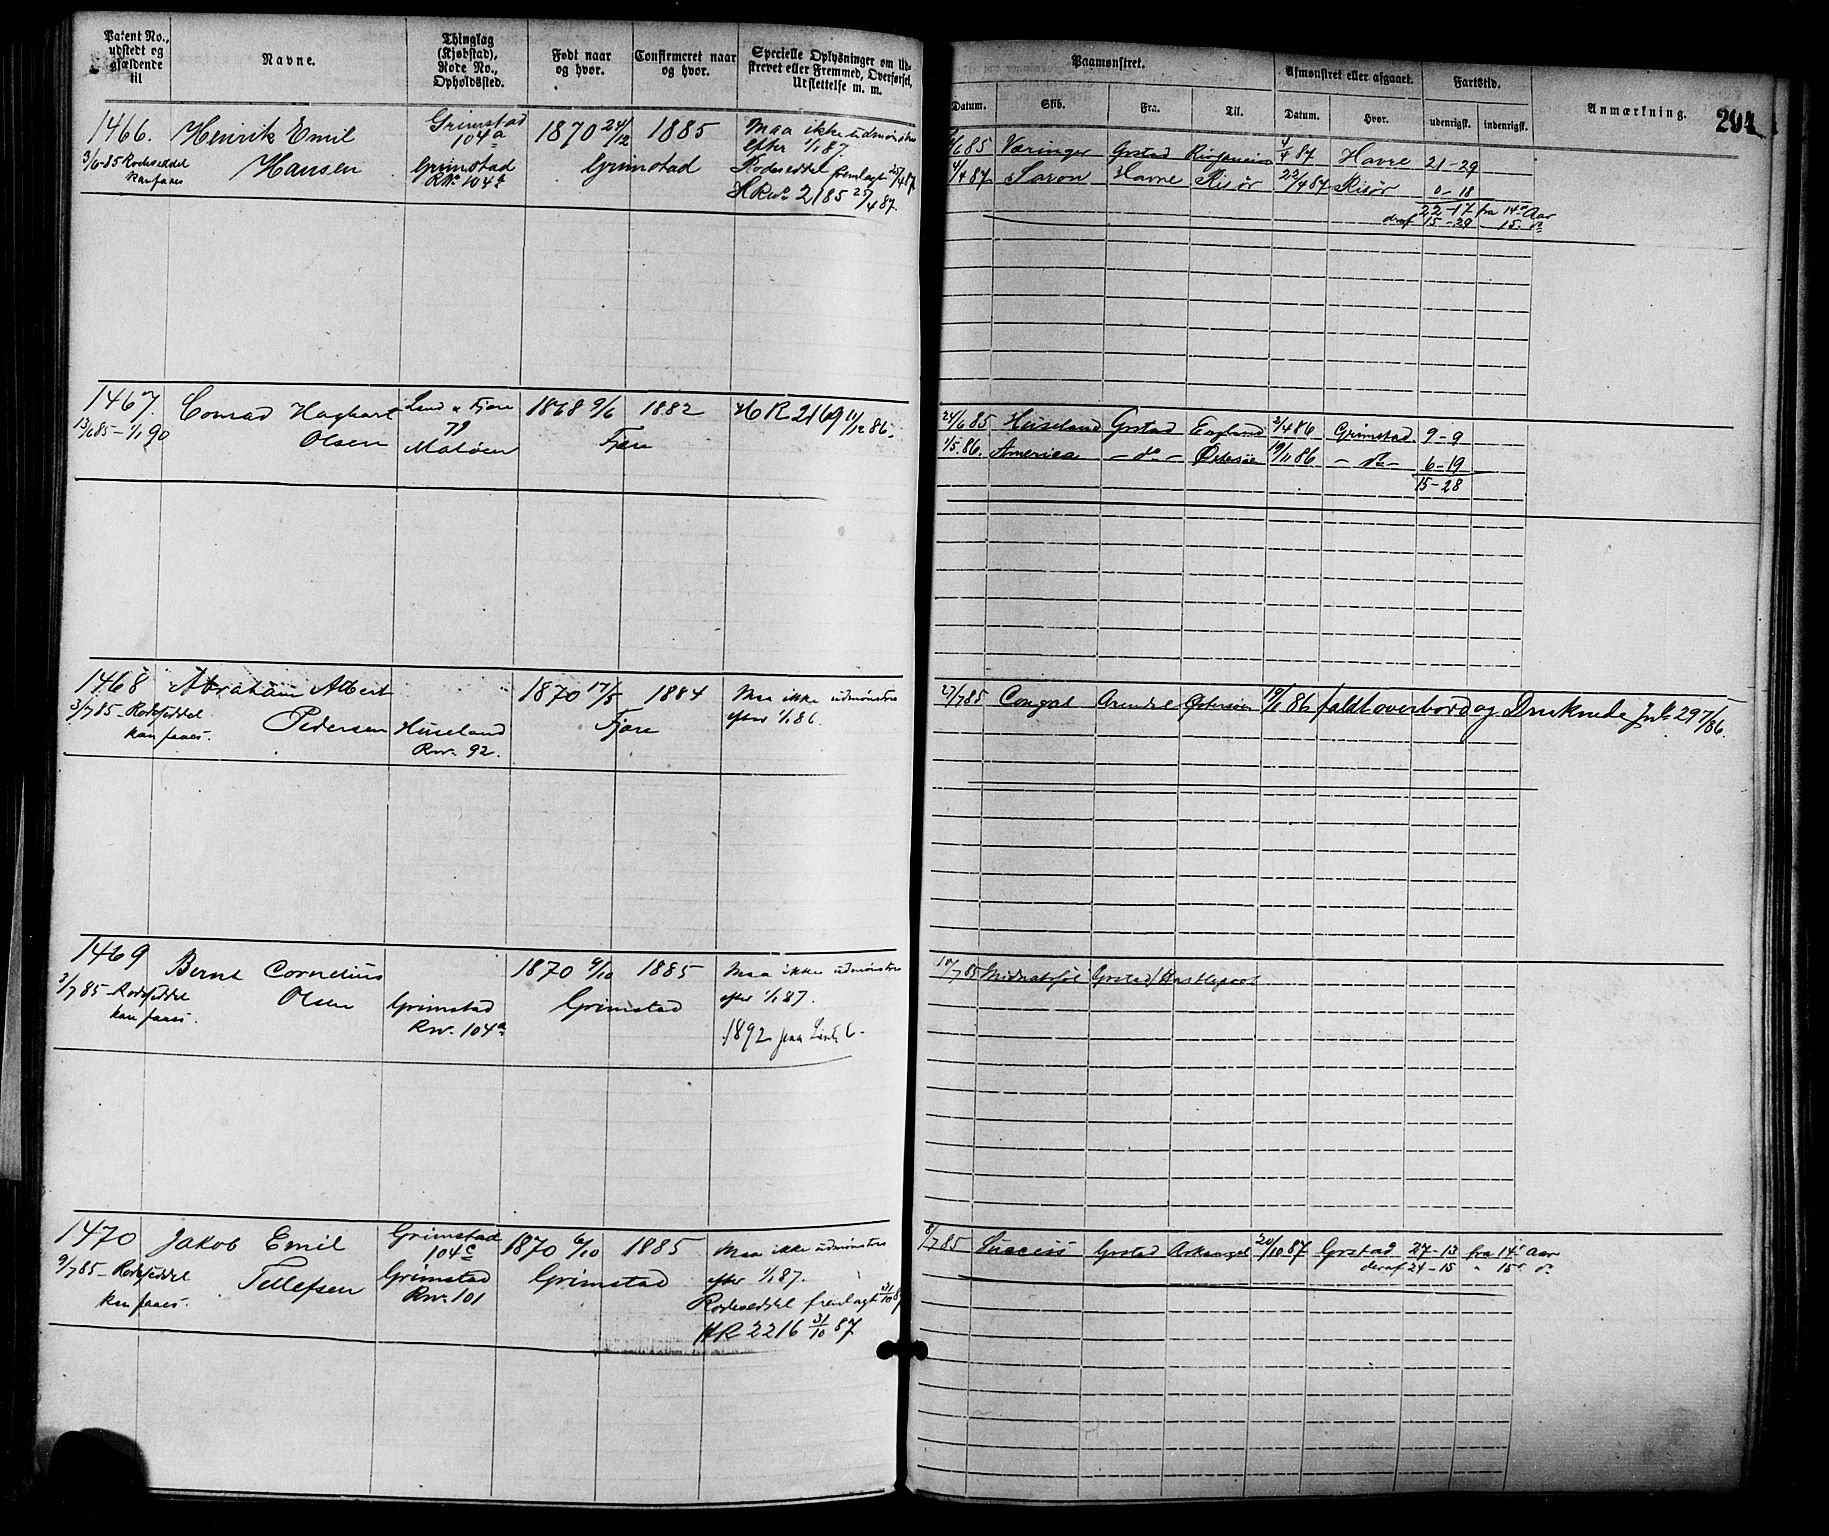 Patent No., udstedt og gjældende til
Navne.
Thinglag (Kjøbstad), Rode No., Opholdssted.
Født naar og hvor.
Confirmeret naar og hvor.
Specielle Oplysninger om Udskrevet eller Fremmed, Overførsel, Udslettelse m. m.
Paamønstret.
Afmønstret eller afgaaet.
Fartstid.
Anmærkning.
294
Datum.
Skib.
Fra.
Til.
Datum.
Hvor.
udenrigsk.
indenrigsk.
1466. Henrik Emil Grimstad 104a 1870 24/12 1885 Maa ikke udmønstres
3/6-85 Rodeseddel kan faaes Hansen Grimstad RNo 104a Grimstad efter 1/1 87.
Rodeseddel fremlagt 25/4 87.
HRNo 2185 25/4 87.
/6 85 Væringer Grstad 4/4 87 Havre 21-29
4/4 87 Saron Havre Risør 22/4 87 Risør 0-18
22-17 fra 14de Aar
deraf 15-29 - 15. do
1467. Conrad Haghart Land o Fjære 1868 9/6 1882 HR 2169 11/12 86.
13/6 85-1/1 90 Olsen 79 Maløen Fjære
24/6 85 Huseland Grstad England 2/4 86 Grimstad 9-9
1/5 86. America - do - Østersøen 19/11 86 - do - 6-19
15-28
1468 Abraham Albert 1870 17/5 1884 Maa ikke udmønstres
3/7 85 - Rodeseddel kan faaes. Pedersen Huseland RNo. 92. Fjære efter 1/1 86.
27/7 85 Congal Arendal Østersøen 19/1 86 faldt overbord og Druknede Jnl. 297/86.
1469 Bernt Cornelius 1870 6/10 1885 Maa ikke udmønstres
3/7 85 - Rodeseddel kan faaes. Olsen Grimstad RNo. 104a Grimstad efter 1/1 87.
1892 paa Liste C.
10/7 85 Midnatssol Grstad Hartlepool
1470 Jakob Emil Grimstad 104c 1870 6/10 1885 Maa ikke udmønstres
9/7 85 - Rodeseddel kan faaes. Tellefsen Grimstad RNo. 101 Grimstad efter 1/1 87.
Rodeseddel fremlagt 31/10 87
HR 2216 31/10 87
8/7 85 Success Grstad Arkangel 20/10 87 Grstad 27-13 fra 14de Aar
deraf 24-15 " 15de do